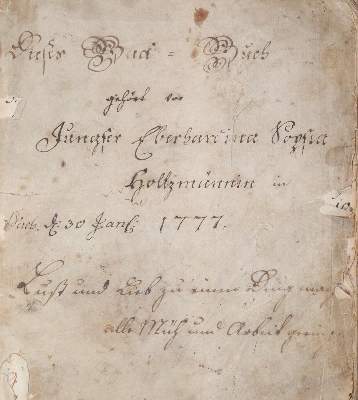 Dieses Back-Buch
gehört vor
Jungfer Eberhardina Sophia
Holtzmännin in
d: 30 Jan: 1777.
Lust und Lieb zu einem Ding ma
alle Müh und Arbeit gering